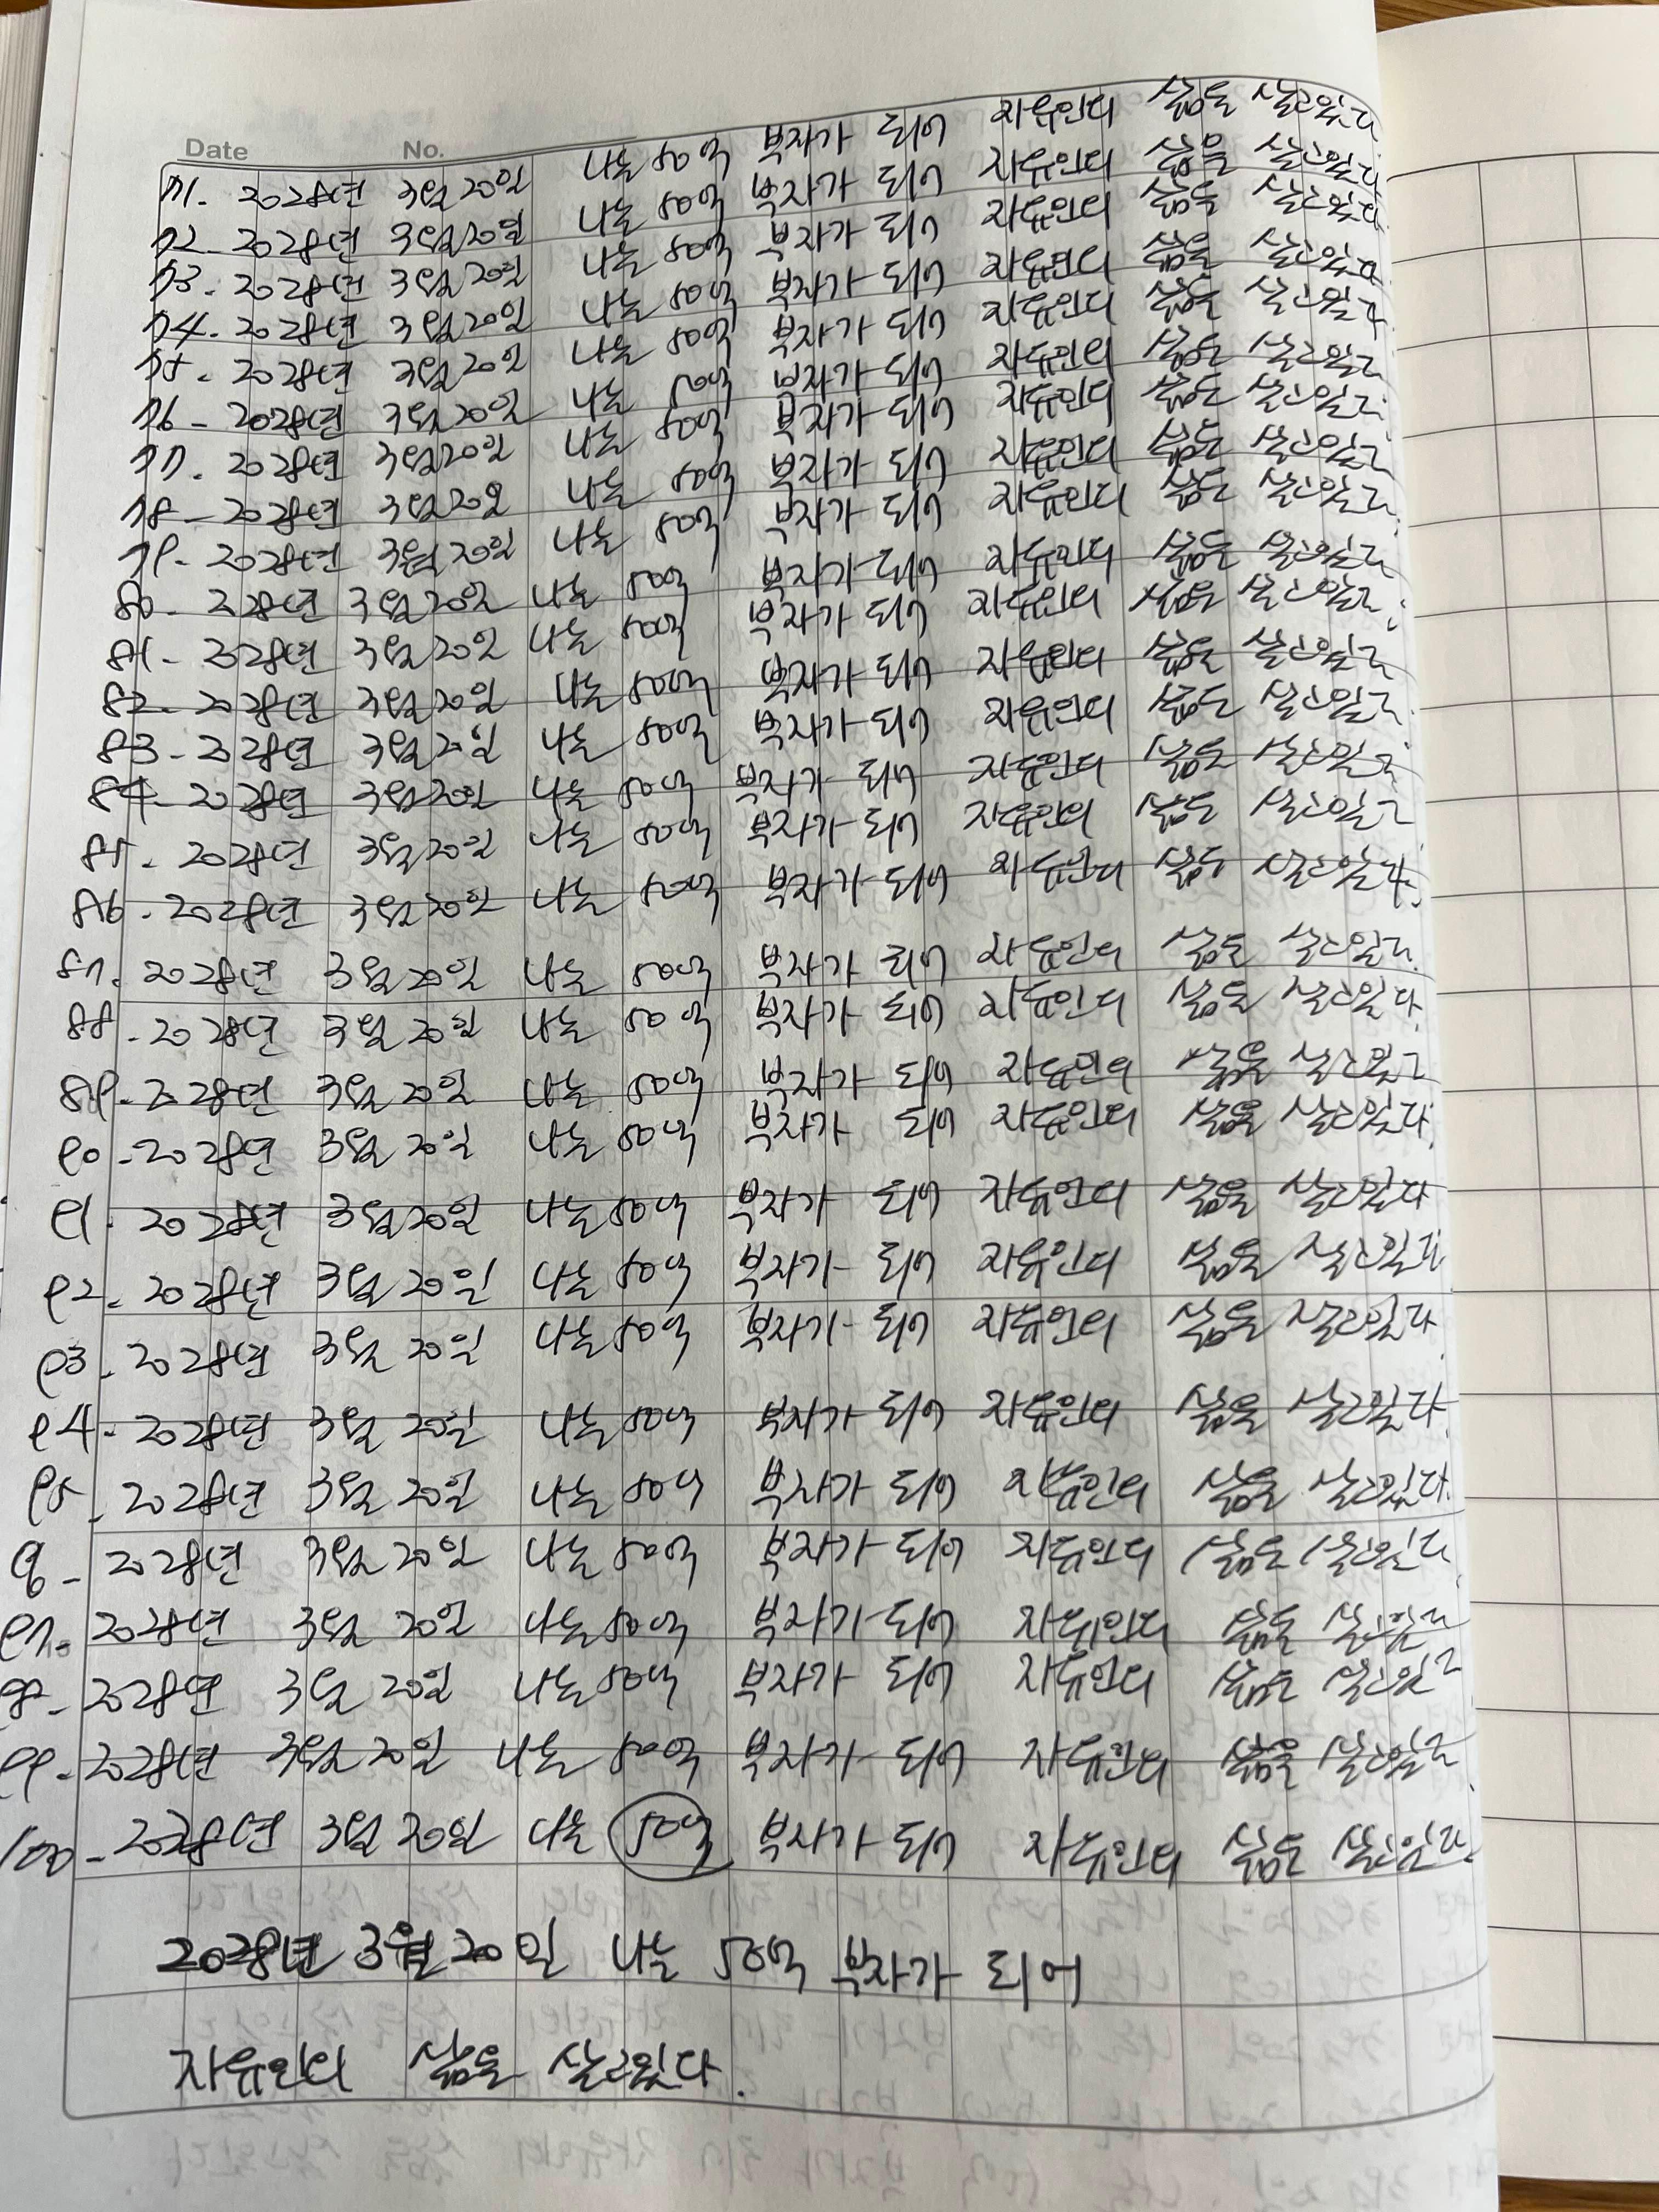 Date No.
71. 2028년 3월 20일 나는 50억 부자가 되어 자유인의 삶을 살고있다
72. 2028년 3월 20일 나는 50억 부자가 되어 자유인의 삶을 살고있다
73. 2028년 3월 20일 나는 50억 부자가 되어 자유인의 삶을 살고있다
74. 2028년 3월 20일 나는 50억 부자가 되어 자유인의 삶을 살고있다
75. 2028년 3월 20일 나는 50억 부자가 되어 자유인의 삶을 살고있다
76. 2028년 3월 20일 나는 50억 부자가 되어 자유인의 삶을 살고있다
77. 2028년 3월 20일 나는 50억 부자가 되어 자유인의 삶을 살고있다
78. 2028년 3월 20일 나는 50억 부자가 되어 자유인의 삶을 살고있다
79. 2028년 3월 20일 나는 50억 부자가 되어 자유인의 삶을 살고있다
80. 2028년 3월 20일 나는 50억 부자가 되어 자유인의 삶을 살고있다
81. 2028년 3월 20일 나는 50억 부자가 되어 자유인의 삶을 살고있다
82. 2028년 3월 20일 나는 50억 부자가 되어 자유인의 삶을 살고있다
83. 2028년 3월 20일 나는 50억 부자가 되어 자유인의 삶을 살고있다
84. 2028년 3월 20일 나는 50억 부자가 되어 자유인의 삶을 살고있다
85. 2028년 3월 20일 나는 50억 부자가 되어 자유인의 삶을 살고있다
86. 2028년 3월 20일 나는 50억 부자가 되어 자유인의 삶을 살고있다.
87. 2028년 3월 20일 나는 50억 부자가 되어 자유인의 삶을 살고있다.
88. 2028년 3월 20일 나는 50억 부자가 되어 자유인의 삶을 살고있다.
89. 2028년 3월 20일 나는 50억 부자가 되어 자유인의 삶을 살고있다
90. 2028년 3월 20일 나는 50억 부자가 되어 자유인의 삶을 살고있다.
91. 2028년 3월 20일 나는 50억 부자가 되어 자유인의 삶을 살고있다
92. 2028년 3월 20일 나는 50억 부자가 되어 자유인의 삶을 살고있다
93. 2028년 3월 20일 나는 50억 부자가 되어 자유인의 삶을 살고있다.
94. 2028년 3월 20일 나는 50억 부자가 되어 자유인의 삶을 살고있다.
95. 2028년 3월 20일 나는 50억 부자가 되어 자유인의 삶을 살고있다.
96. 2028년 3월 20일 나는 50억 부자가 되어 자유인의 삶을 살고있다.
97. 2028년 3월 20일 나는 50억 부자가 되어 자유인의 삶을 살고있다
98. 2028년 3월 20일 나는 50억 부자가 되어 자유인의 삶을 살고있다
99. 2028년 3월 20일 나는 50억 부자가 되어 자유인의 삶을 살고있다.
100. 2028년 3월 20일 나는 50억 부자가 되어 자유인의 삶을 살고있다.
2028년 3월 20일 나는 50억 부자가 되어
자유인의 삶을 살고있다.